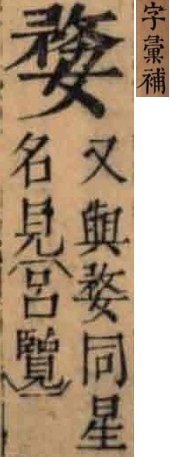 字彙補
婺
又與婺同星
名見（呂覽）